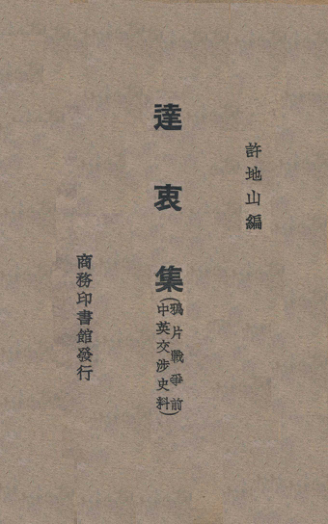 許地山編
達衷集
(鴉片戰爭前
中英交涉史料)
商務印書館發行